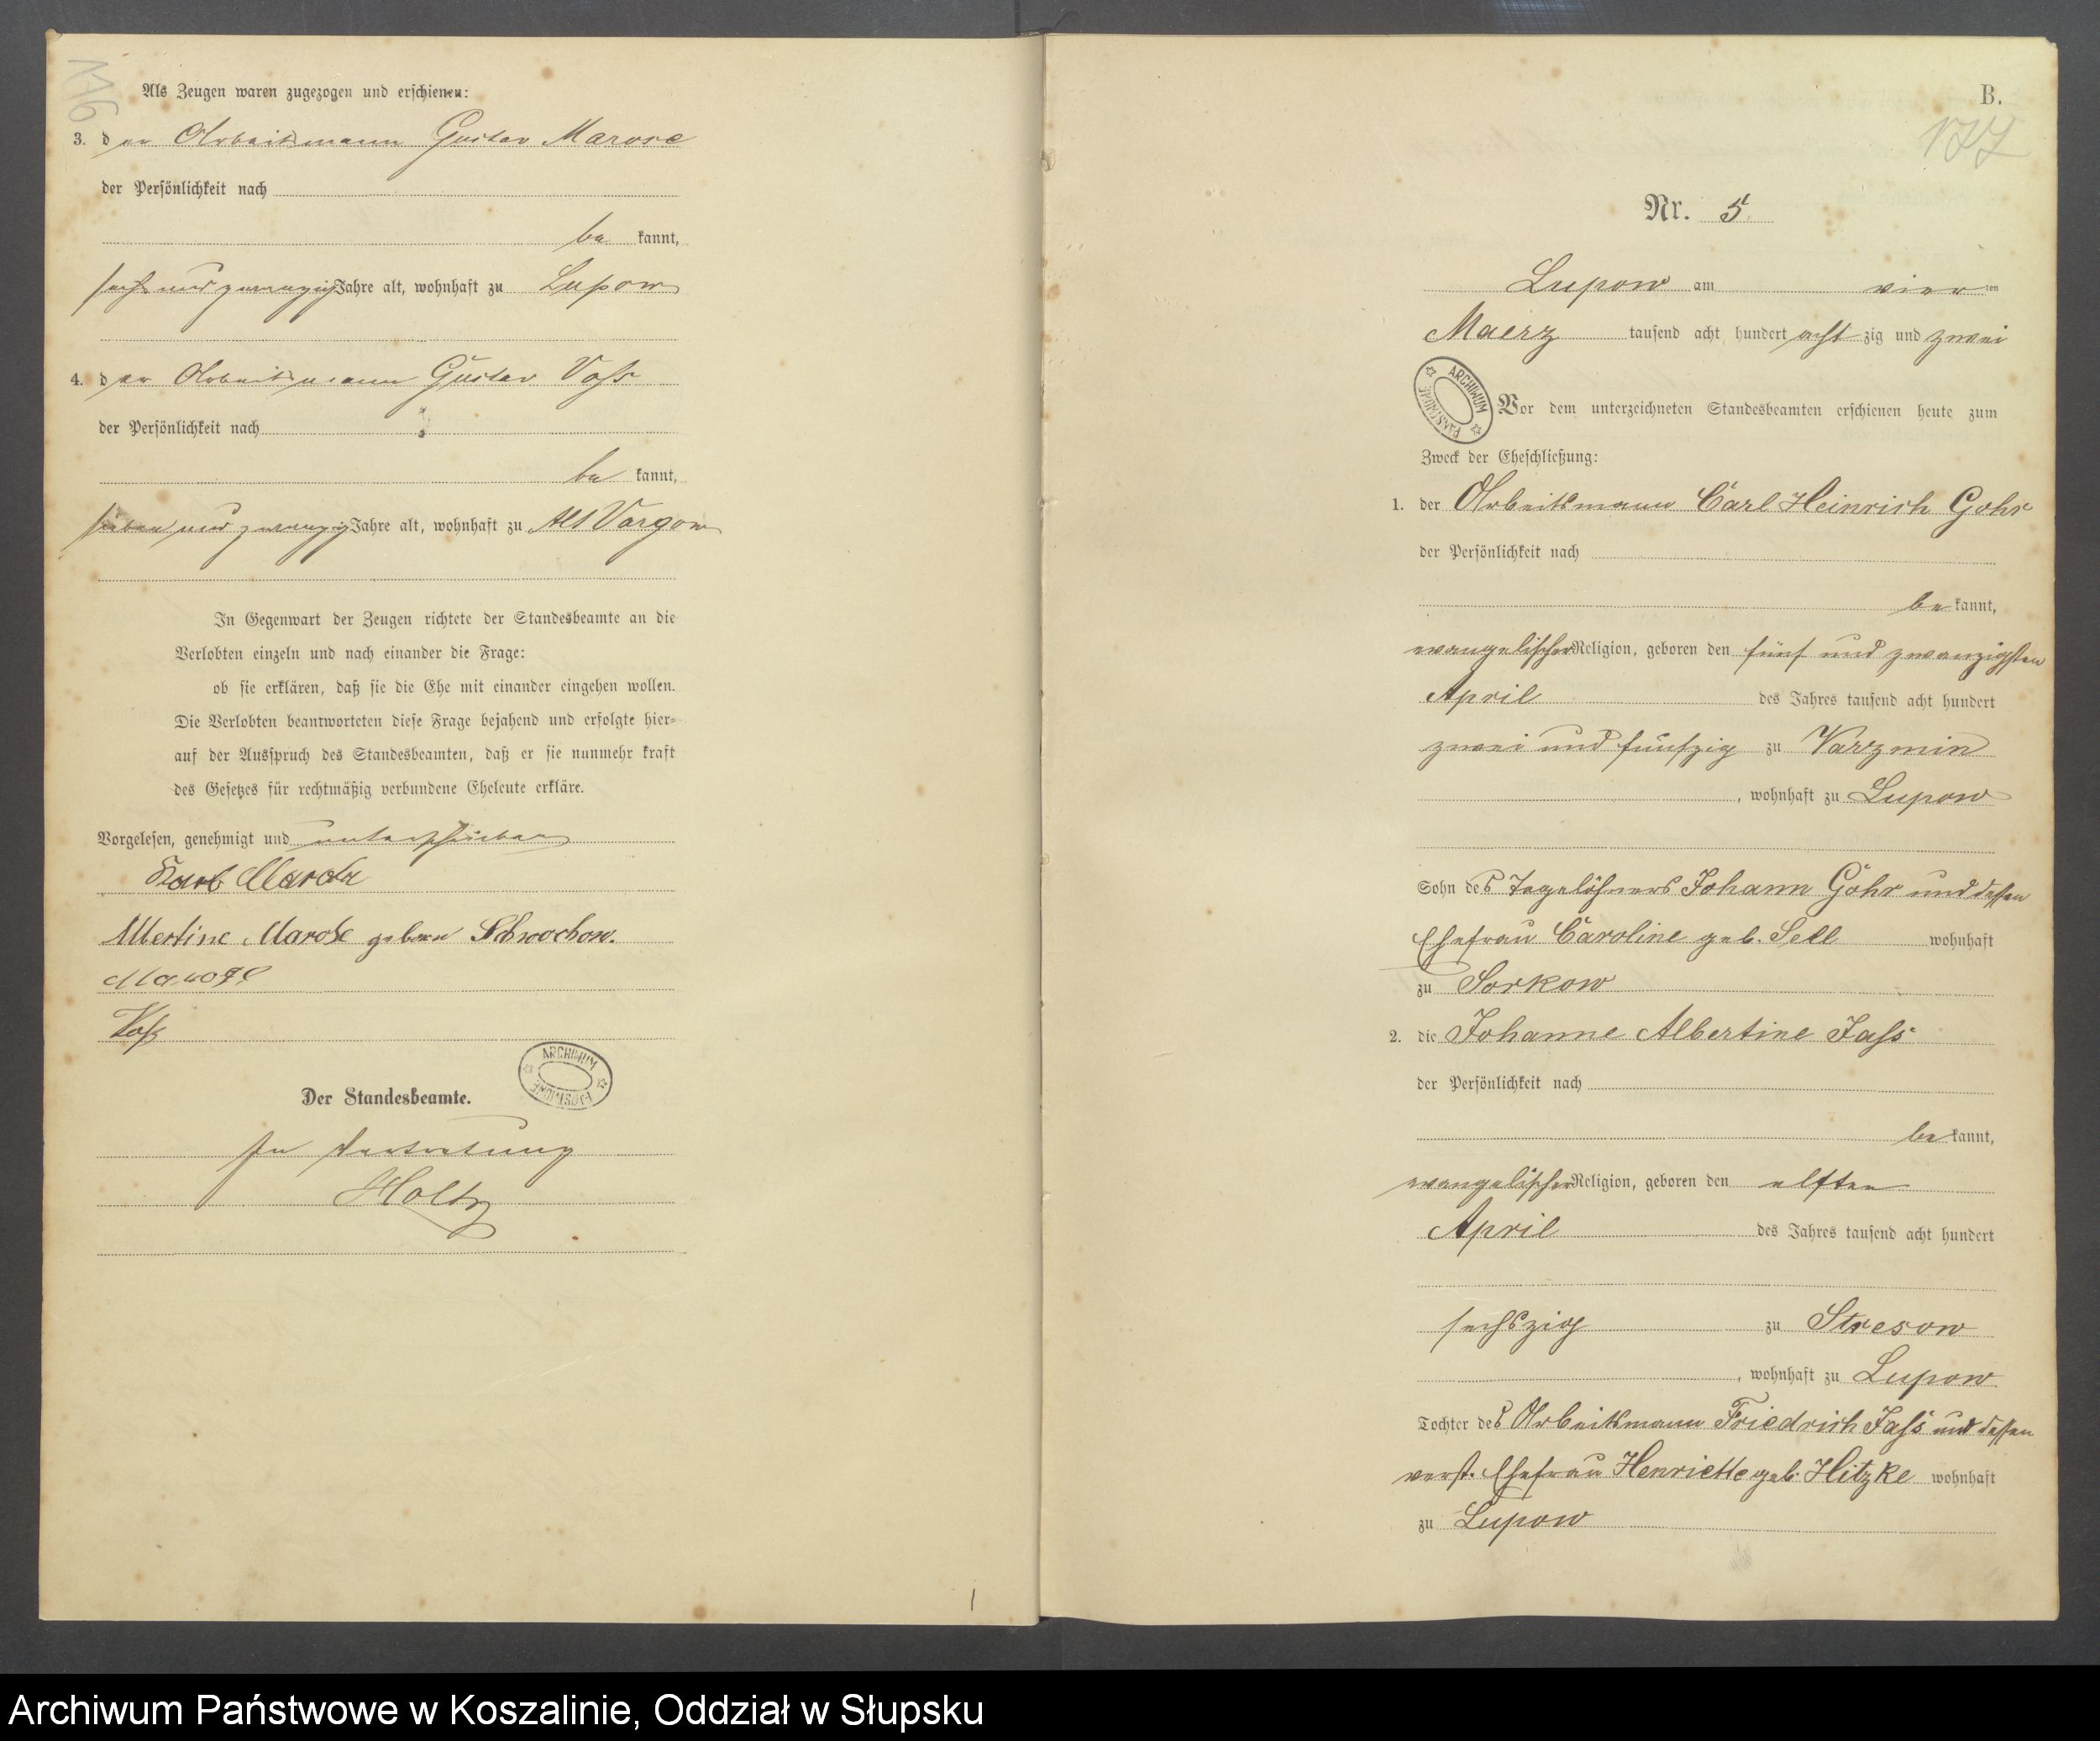 176
Als Zeugen waren zugezogen und erschienen:
3. der Arbeitsmann Gustav Marose
der Persönlichkeit nach
be kannt,
sechs und zwanzig Jahre alt, wohnhaft zu Lupow
4. der Arbeitsmann Gustav Voß
der Persönlichkeit nach
be kannt,
sieben und zwanzig Jahre alt, wohnhaft zu Alt Vargow
In Gegenwart der Zeugen richtete der Standesbeamte an die
Verlobten einzeln und nach einander die Frage:
ob sie erklären, daß sie die Ehe mit einander eingehen wollen.
Die Verlobten beantworteten diese Frage bejahend und erfolgte hier-
auf der Ausspruch des Standesbeamten, daß er sie nunmehr kraft
des Gesetzes für rechtmäßig verbundene Eheleute erkläre.
Vorgelesen, genehmigt und unterschrieben
Karl
Albertine Marose geboren Schwochow.
Marose
Voß
ARCHIWUM PAŃSTWOWE
Der Standesbeamte.
In Vertretung
Holtz
B.
177
Nr. 5.
Lupow am vier ten
Maerz tausend acht hundert acht zig und zwei
ARCHIWUM PAŃSTWOWE
Vor dem unterzeichneten Standesbeamten erschienen heute zum
Zweck der Eheschließung:
1. der Arbeitsmann Carl Heinrich Gohr
der Persönlichkeit nach
be kannt,
evangelischer Religion, geboren den fünf und zwanzigsten
April des Jahres tausend acht hundert
zwei und fünfzig zu Varzmin
, wohnhaft zu Lupow
Sohn des Tagelöhners Johann Gohr und dessen
Ehefrau Caroline geb. Sell wohnhaft
zu Sorkow
2. die Johanne Albertine Jaß
der Persönlichkeit nach
be kannt,
evangelischer Religion, geboren den elften
April des Jahres tausend acht hundert
sechszig zu Stresow
, wohnhaft zu Lupow
Tochter des Arbeitsmann Friedrich Jaß und dessen
verst. Ehefrau Henriette geb. Hitzke wohnhaft
zu Lupow
Archiwum Państwowe w Koszalinie, Oddział w Słupsku